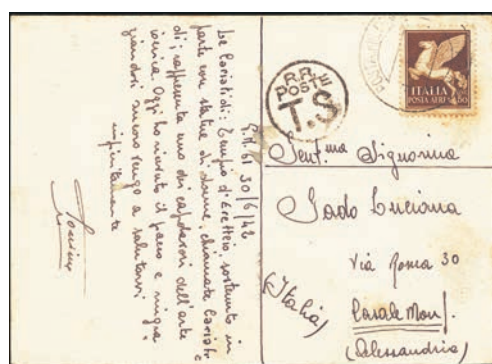 P.M. 61 30/6/42
Le Cariatidi: Tempio d'Eretteio, sostenuto in
parte con statue di donne, chiamate Cariati
di; rappresenta uno dei capolavori dell'arte
ionica. Oggi ho ricevuto il pacco e
ringraziandosi vengo a salutarvi
infinitamente
R.R.
POSTE
T.S
ITALIA
POSTA AEREA
Gent.ma Signorina
Luciana
Via Roma 30
Casale Monf.
(Alessandria)
(Italia)